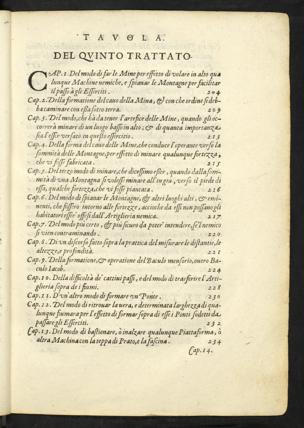 TAVOLA
DEL QVINTO TRATTATO.
CAP. 1. Del modo di far le Mine per effetto di volare in alto qua
lunque Machine nemiche, e spianar le Montagne per facilitar
il passo à gli Esserciti. 204
Cap. 2. Della formatione del cauo della Mina, & con che ordine si deb-
ba caminare con essa sotto terra. 209
Cap. 3. Del modo, che hà da tener l'artefice delle Mine, quando gli oc-
correrà minare di un luogo basso in alto; & di quanta importanza
sia l'esser versato in questo essercitio. 213
Cap. 4. Della forma del cauo delle Mine, che conduce l'operante verso la
sommità delle Montagne, per effetto di minare qualunque fortezza,
che vi fusse fabricata. 215
Cap. 5. Del terzo modo di minare, che dicessimo esser, quando dalla som-
mità di una Montagna si volesse minare all'ingiù, verso il piede di
essa, qualche fortezza, che vi fusse piantata. 216
Cap. 6. Del modo di spianar le Montagne, & altri luoghi alti, & emi-
nenti, che fussero intorno alle fortezze, acciochè da essi non possano gli
habitatori esser' offesi dall'Artiglieria nemica. 217
Cap. 7. Del modo più certo, & più sicuro da poter' intendere, se'l nemico
si vien contraminando. 220
Cap. 8. Di un discorso fatto sopra la prattica del misurare le distantie, le
altezze, e profondità. 221
Cap. 9. Della formatione, & operatione del Baculo mensorio, ouero Ba-
culo Iacob. 224
Cap. 10. Della difficoltà de' cattiui passi, e del modo di trasferire l'Arti-
glieria sopra de i fiumi. 228
Cap. 11. D'un'altro modo di formare un' Ponte. 230
Cap. 12. Del modo di ritrouar la vera, e determinata larghezza di qua-
lunque fiumara per l'effetto di formar sopra di essi i Ponti sodetti da
passare gli Esserciti. 232
Cap. 13. Del modo di bastionare, ò inalzare qualunque Piattaforma, ò
altra Machina con la teppa di Prato, e la fascina. 234
Cap. 14.